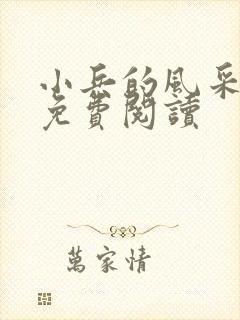 小兵的風采
免費閱讀
萬家情